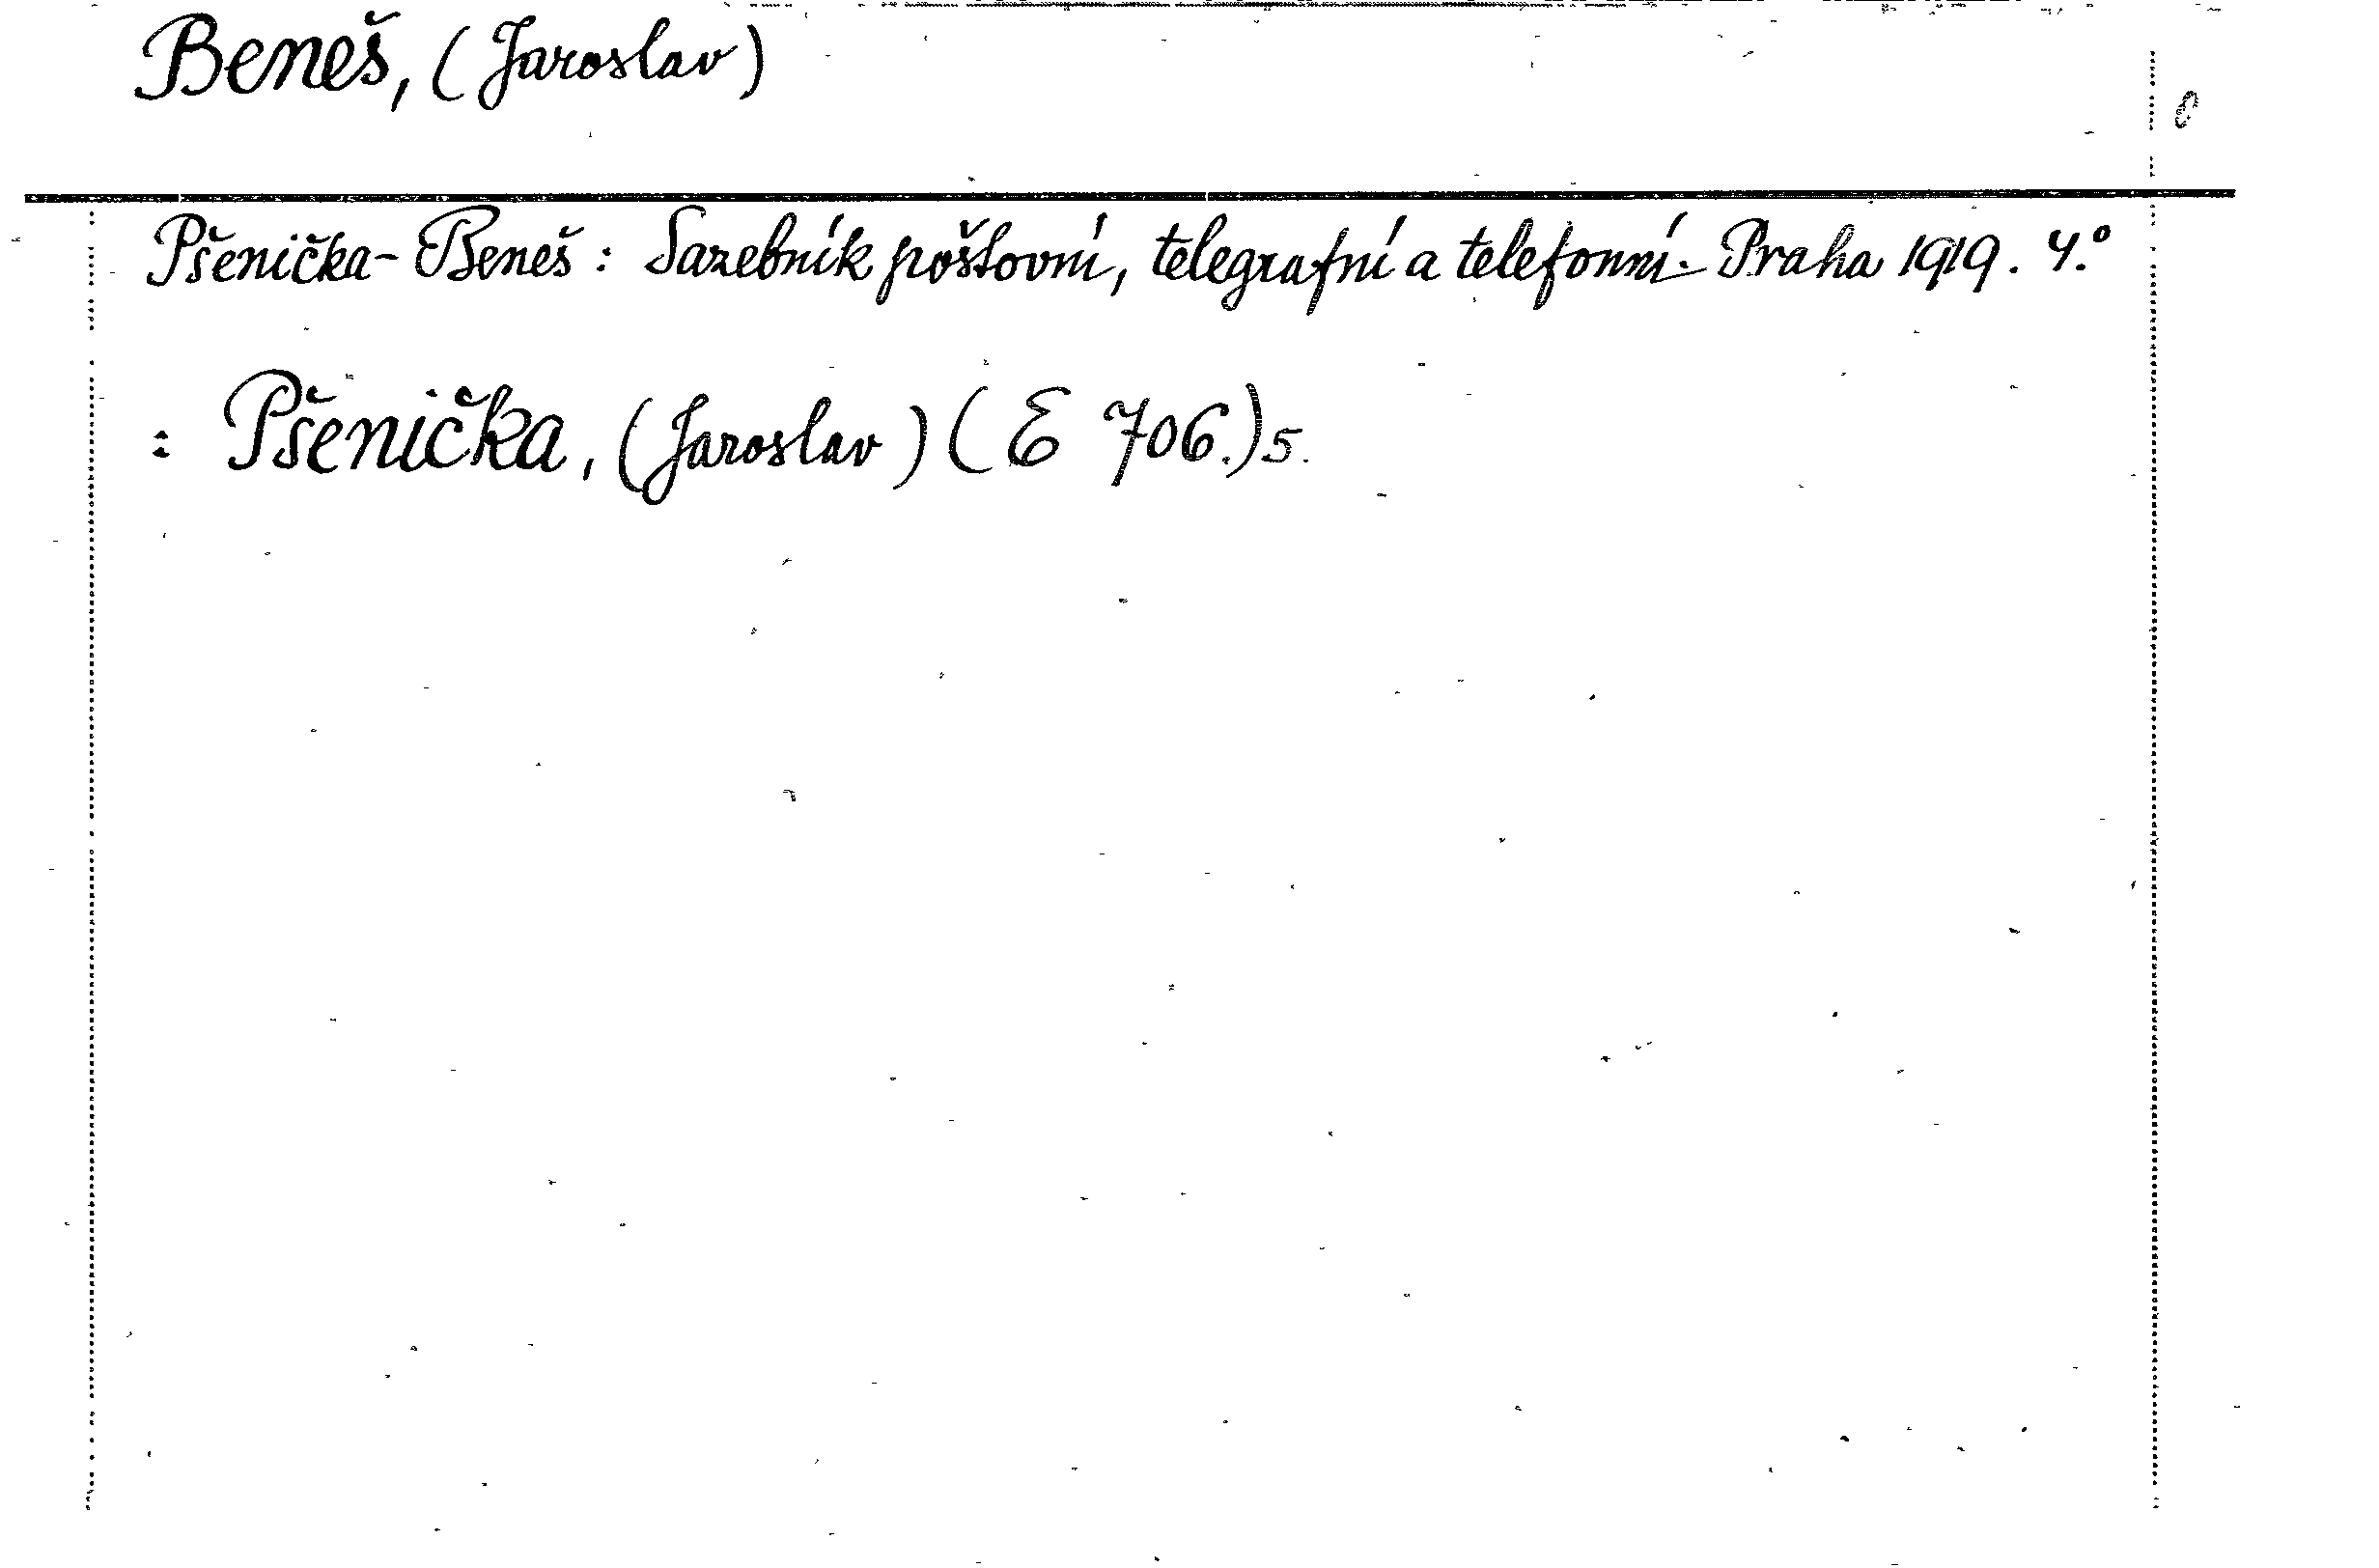 Beneš, (Jaroslav)
Pšenička-Beneš: Sazebník poštovní, telegrafní a telefonní. Praha 1919. 4.°
: Pšenička, (Jaroslav) (E 706.)5.